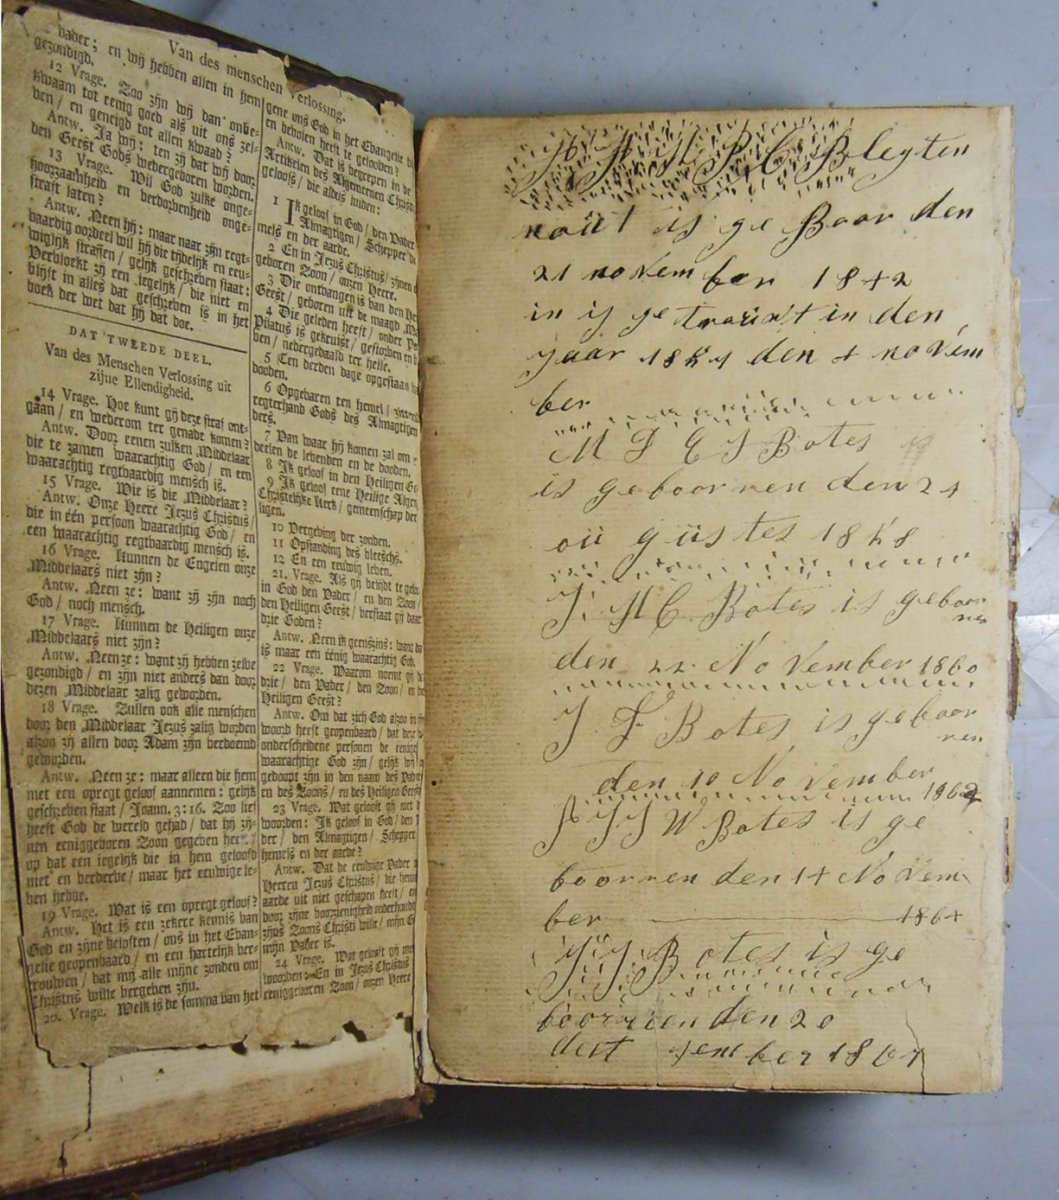 Van des menschen verlossing.
vader; en wij hebben allen in hem
gezondigd.
12 Vrage. Zoo zijn wij dan onbe-
kwaam tot eenig goed als uit ons zel-
ven / en geneigd tot allen kwaad?
Antw. Ja wij: ten zij dat wij door
den Geest Gods wedergeboren worden.
13 Vrage. Wil God zulke onge-
hoorzaamheid en verdorvenheid onge-
straft laten?
Antw. Neen hij: maar naar zijn regt-
vaardig oordeel wil hij die tijdelijk en eeu-
wiglijk straffen / gelijk geschreven staat:
Vervloekt zij een iegelijk / die niet en
blijft in alles dat geschreven is in het
boek der wet dat hij dat doe.
DAT TWEEDE DEEL.
Van des Menschen Verlossing uit
zijne Ellendigheid.
14 Vrage. Hoe kunt gij deze straf ont-
gaan / en wederom ter genade komen?
Antw. Door eenen zulken Middelaar
die te zamen waarachtig God / en een
waarachtig regtvaardig mensch is.
15 Vrage. Wie is die Middelaar?
Antw. Onze Heere Jezus Christus /
die in één persoon waarachtig God / en
een waarachtig regtvaardig mensch is.
16 Vrage. Kunnen de Engelen onze
Middelaars niet zijn?
Antw. Neen ze: want zij zijn noch
God / noch mensch.
17 Vrage. Kunnen de Heiligen onze
Middelaars niet zijn?
Antw. Neen ze: want zij hebben zelve
gezondigd / en zijn niet anders dan door
dezen Middelaar zalig geworden.
18 Vrage. Zullen ook alle menschen
door den Middelaar Jezus zalig worden
alzoo zij allen door Adam zijn verdoemd
geworden.
Antw. Neen ze: maar alleen die hem
met een opregt geloof aannemen: gelijk
geschreven staat / Joann. 3:16. Zoo lief
heeft God de wereld gehad / dat hij zij-
nen eeniggeboren Zoon gegeven heeft /
op dat een iegelijk die in hem gelooft
niet en verderve / maar het eeuwige le-
ven hebbe.
19 Vrage. Wat is een opregt geloof?
Antw. Het is een zekere kennis van
God en zijne beloften / ons in het Evan-
gelie geopenbaard / en een hartelijk ver-
trouwen / dat mij alle mijne zonden om
Christus wille vergeven zijn.
20. Vrage. Welk is de somma van het
gene ons God in het Evangelie
en bevolen heeft te gelooven?
Antw. Dat is begrepen in de
Artikelen des Algemeenen Christ
geloofs / die aldus luiden:
1 Ik geloof in God / den Vader
Almagtigen / Schepper
mels en der aarde.
2 En in Jezus Christus / zijnen
geboren Zoon / onzen Heere.
3 Die ontvangen is van den
Geest / geboren uit de maagd
4 Die geleden heeft / onder
Pilatus is gekruist / gestorven en
ven / nedergedaald ter helle.
5 Ten derden dage opgestaan
dooden.
6 Opgevaren ten hemel /
regterhand Gods des Almagtigen
ders.
7 Van waar hij komen zal om
deelen de levenden en de dooden.
8 Ik geloof in den Heiligen
9 Ik geloof eene Heilige Algem
Christelijke Kerk / gemeenschap der
ligen.
10 Vergeving der zonden.
11 Opstanding des vleeschs.
12 En een eeuwig leven.
21. Vrage. Als gij belijdt te
in God den Vader / en den Zoon /
den Heiligen Geest / verstaat gij daar
drie Goden?
Antw. Neen ik geenszins: want
is maar een eenig waarachtig God.
22 Vrage. Waarom noemt gij
drie / den Vader / den Zoon / en
Heiligen Geest?
Antw. Om dat zich God alzoo in
woord heeft geopenbaard / dat deze
onderscheidene personen de eenige
waarachtige God zijn / gelijk wij
gedoopt zijn in den naam des Vaders
en des Zoons / en des Heiligen Geest
23 Vrage. Wat gelooft gij met
woorden: Ik geloof in God / den
der / den Almagtigen / Schepper
hemels en der aarde?
Antw. Dat de eeuwige Vader
Heeren Jezus Christus / die hemel
aarde uit niet geschapen heeft / en
door zijne voorzienigheid onderhoudt
zijns Zoons Christi wille / mijn
mijn Vader is.
24 Vrage. Wat gelooft gij met
woorden: En in Jezus Christus
eeniggeboren Zoon / onzen Heere
H M P C Bleyten
is ge Boor den
21 novem ber 1842
in is ge traüwt in den
jaar den 4 novem
ber
M D E S Botes
is geboorren den 24
oü güstes 1858
J. M C Botes is geboor
ren
den 22 November 1860
J F Botes is geboor
ren
den 10 November
1862
J J W Botes is ge
boorren den 14 Novem
ber 1864
J J Botes is ge
boorreen den 20
dest sember 1867